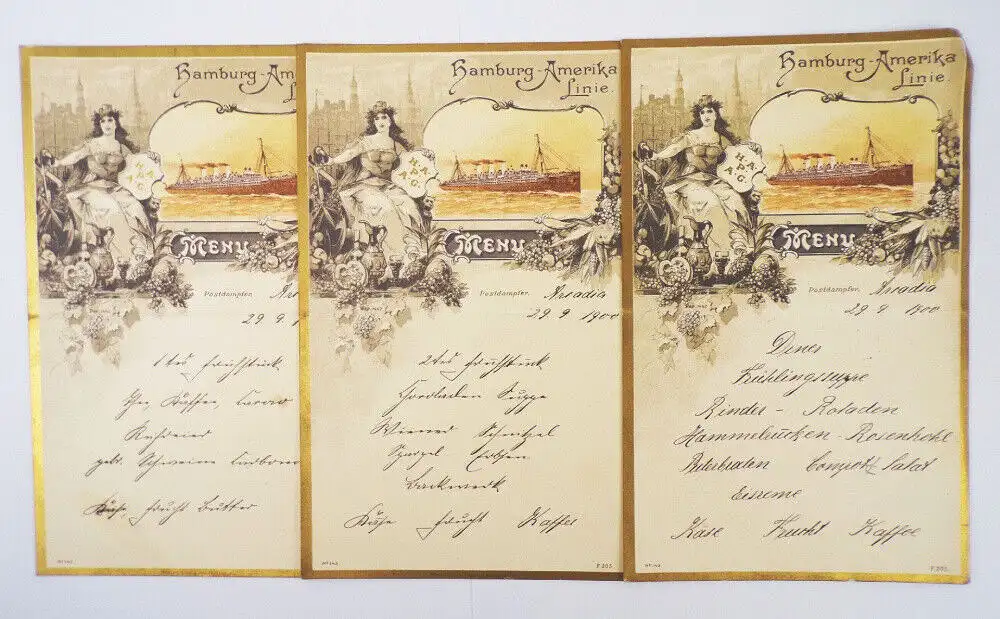 Hamburg-Am
Linie
H.A.
P.
A.G.
MENU
Postdampfer.
29 9 1
1tes Frühstück
Thee, Kaffee, Cacao
Rühreier
gebr. Schweine
Käse, Frucht Butter
Nº 140
Hamburg-Amerika
Linie.
H.A.
P.
A.G.
MENU
Postdampfer. Arcadia
29 9 1900
2tes Frühstück
Suppe
Wiener Schnitzel
Spargel Erbsen
Backwerk
Käse Frucht Kaffee
F.203.
Hamburg-Amerika
Linie.
H.A.
P.
A.G.
MENU
Postdampfer. Arcadia
29 9 1900
Diner
Frühlingssuppe
Rinder - Roladen
Hammelrücken - Rosenkohl
Puterbraten Compott Salat
Eiscreme
Käse Frucht Kaffee
F.203.